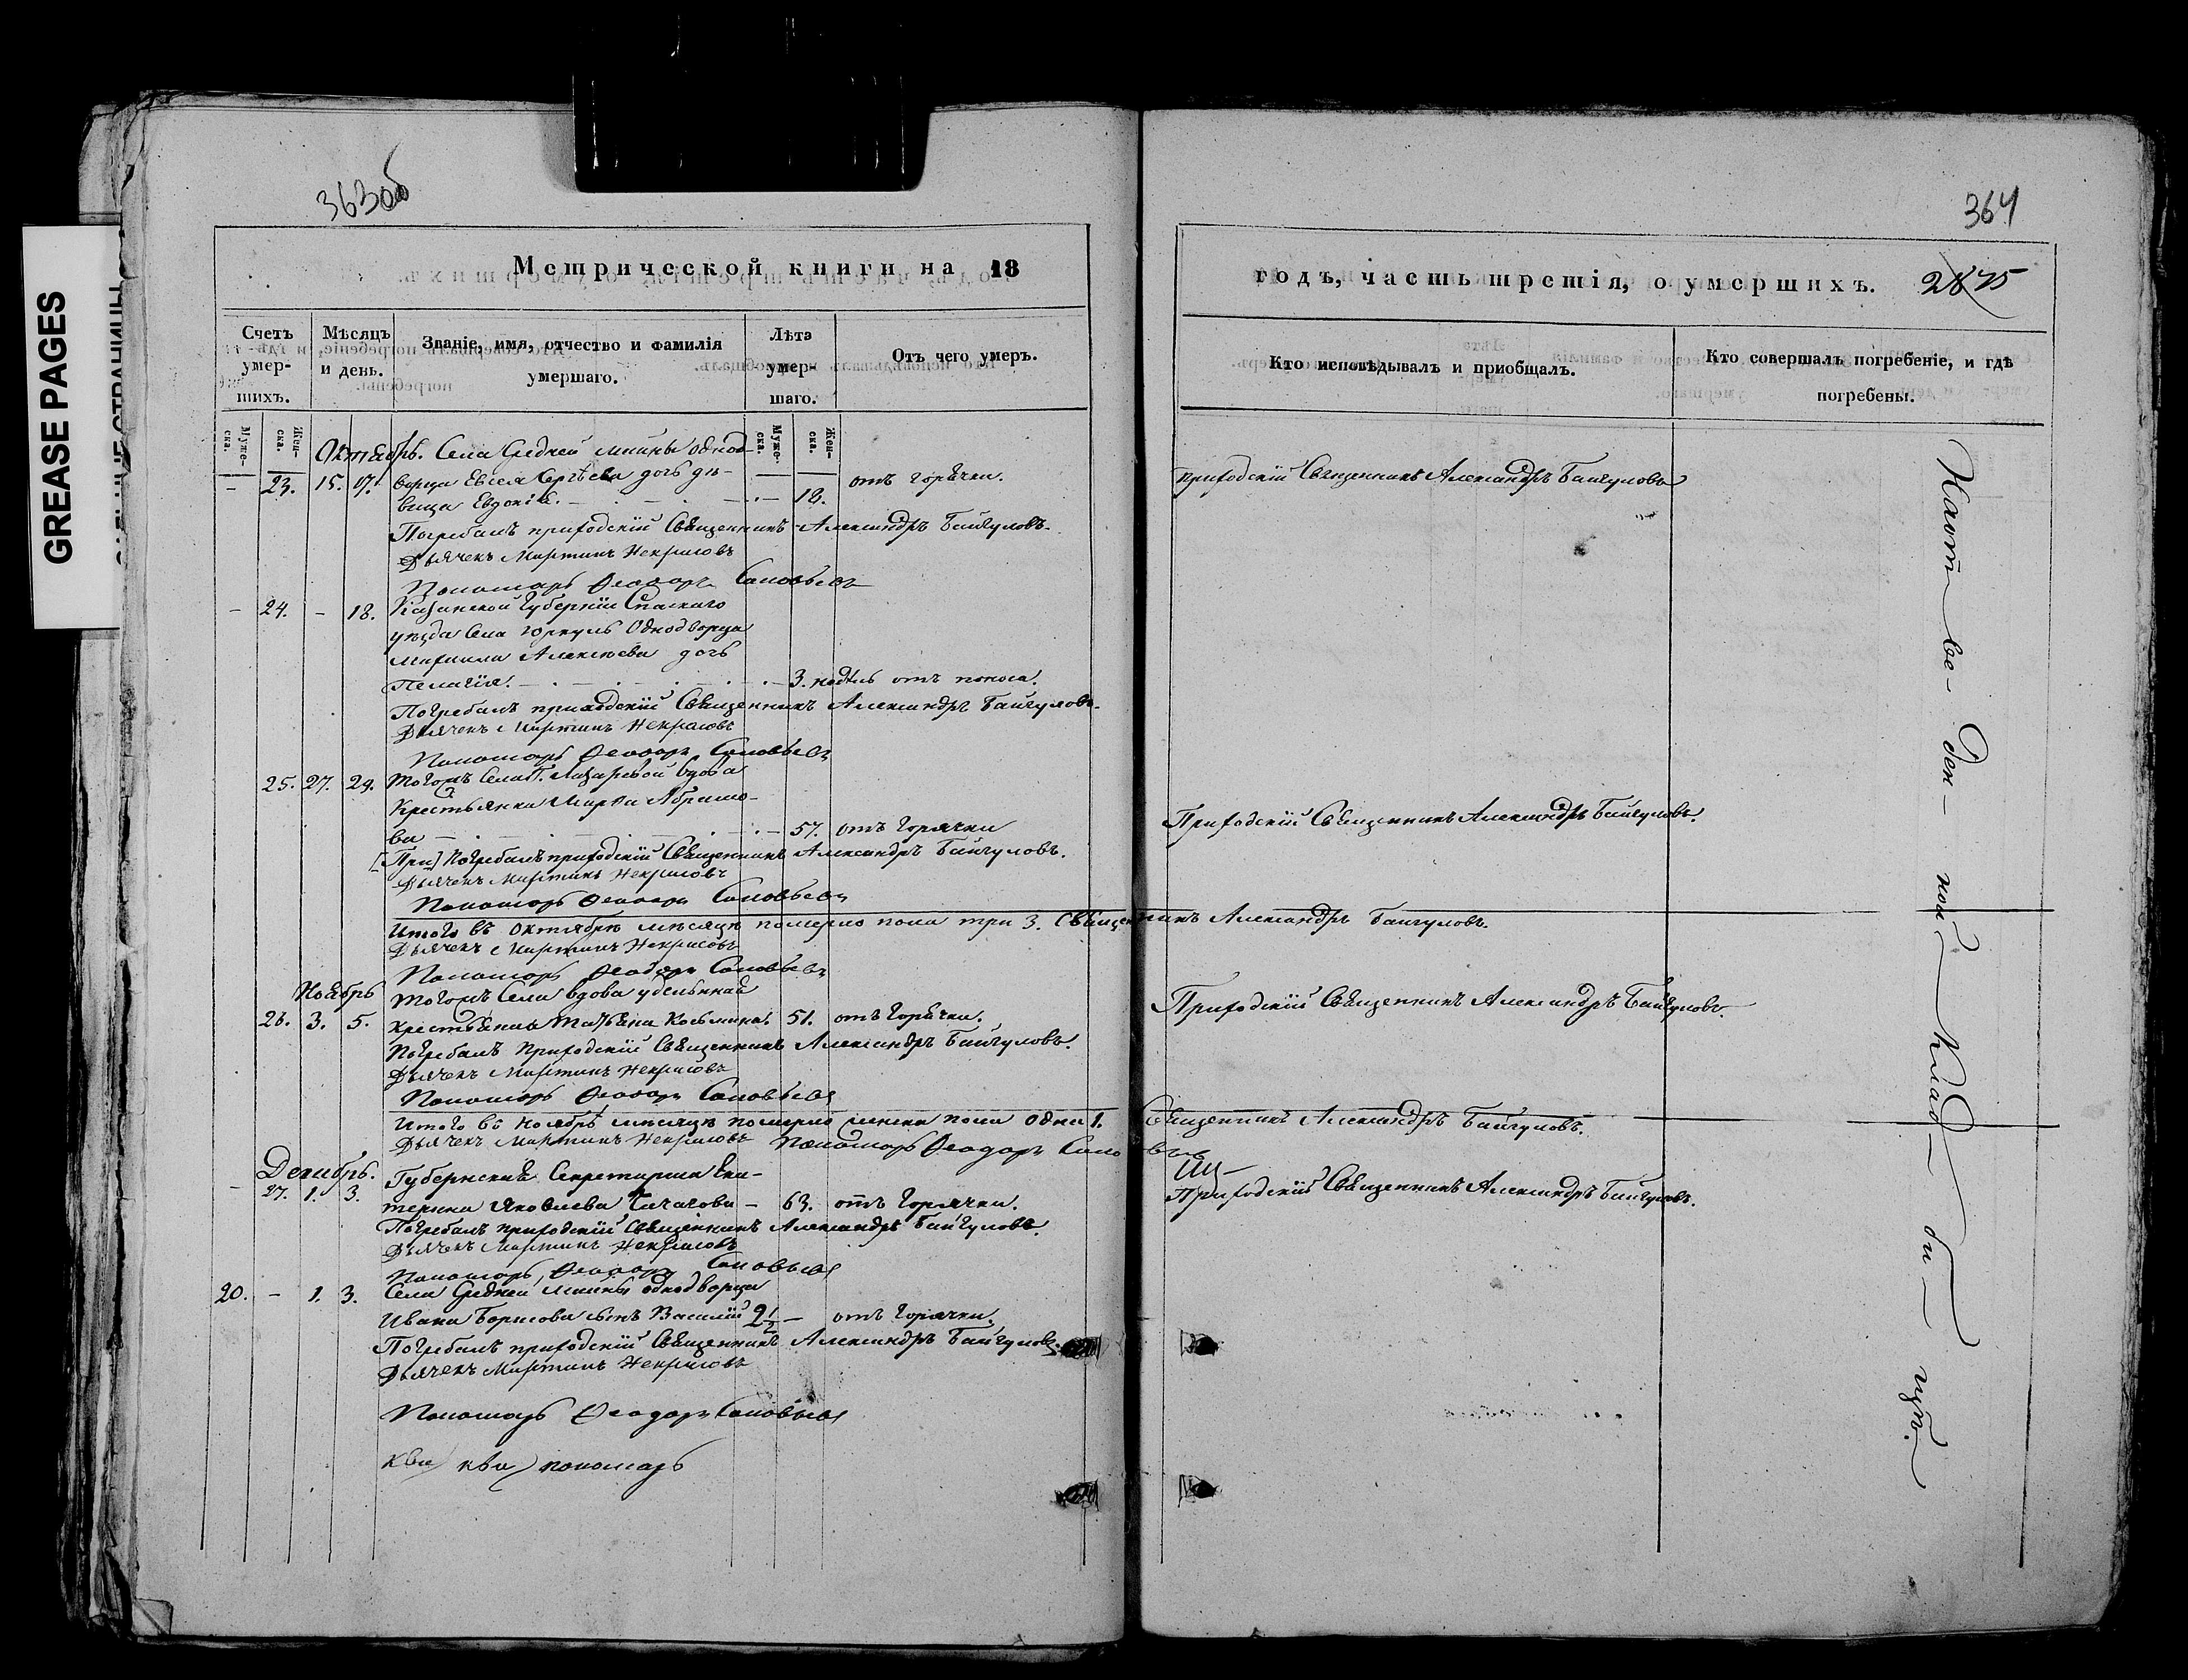 GREASE PAGES
363об
Метрической книги на 18
Счетъ умер-шихъ.
Мѣсяцъ и день.
Званіе, имя, отчество и фамилія умершаго.
Лѣта умер-шаго.
Отъ чего умеръ.
Муже-ска.
Жен-ска.
Муже-ска.
Жен-ска.
Октябрь. Села Средней одно-
23. 15. 17. ворца Евсея Сергѣева дочь дѣ- отъ горячки.
вица Евдокія. 18.
Погребалъ приходскій Священникъ Александръ Байгуловъ.
Дьячекъ Мартинъ Некрасовъ
Пономарь Ѳеодоръ Соловьевъ
24. - 18. Казанской Губерніи Спаскаго
уѣзда Села Однодворца
Михаила Алексѣева дочь
Пелагія. 3. недѣль отъ поноса.
Погребалъ приходскій Священникъ Александръ Байгуловъ.
Дьячекъ Мартинъ Некрасовъ
Пономарь Ѳеодоръ Соловьевъ
25. 27. 29. Тогожъ Села вдова
Крестьянка Марѳа Абрамо-
ва 57. отъ Горячки
[При] Погребалъ приходскій Священникъ Александръ Байгуловъ.
Дьячекъ Мартинъ Некрасовъ
Пономарь Ѳеодоръ Соловьевъ
Итого въ Октябрѣ мѣсяцѣ померло пола три 3. Священникъ Александръ Байгуловъ.
Дьячекъ Мартинъ Некрасовъ
Пономарь Ѳеодоръ Соловьевъ
Ноябрь Тогожъ Села вдова удельная
26. 3. 5. крестьянка Татьяна Козьмина. 51. отъ Горячки.
Погребалъ Приходскій Священникъ Александръ Байгуловъ.
Дьячекъ Мартинъ Некрасовъ
Пономарь Ѳеодоръ Соловьевъ
Итого въ Ноябрѣ мѣсяцѣ померло женска пола одна 1. Священникъ Александръ Байгуловъ.
Дьячекъ Мартинъ Некрасовъ Пономарь Ѳеодоръ Соловьевъ
Декабрь. Губернская Секретарша Ека-
27. 1. 3. терина Яковлева Чичагова - 63. отъ Горячки.
Погребалъ приходскій Священникъ Александръ Байгуловъ.
Дьячекъ Мартинъ Некрасовъ
Пономарь Ѳеодоръ Соловьевъ
20. - 1. 3. Села Средней однодворца
Ивана Борисова сынъ Василій 2½ - отъ Горячки.
Погребалъ приходскій Священникъ Александръ Байгуловъ.
Дьячекъ Мартинъ Некрасовъ
Пономарь Ѳеодоръ Соловьевъ
пономарь
364
годъ, часть третія, о умершихъ.
Кто исповѣдывалъ и приобщалъ.
Кто совершалъ погребеніе, и гдѣ погребены.
приходскій Священникъ Александръ Байгуловъ
Приходскій Священникъ Александръ Байгуловъ.
Приходскій Священникъ Александръ Байгуловъ.
Приходскій Священникъ Александръ Байгуловъ.
На от ве ден ной клад би щѣ.